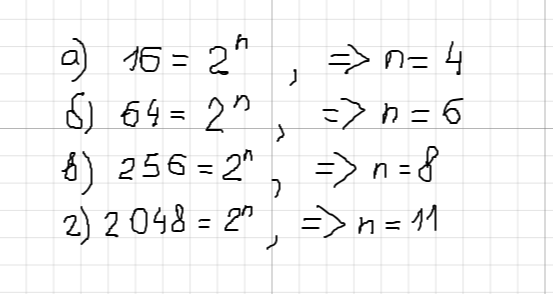 а) 16 = 2ⁿ, => n = 4
б) 64 = 2ⁿ, => n = 6
в) 256 = 2ⁿ, => n = 8
г) 2048 = 2ⁿ, => n = 11